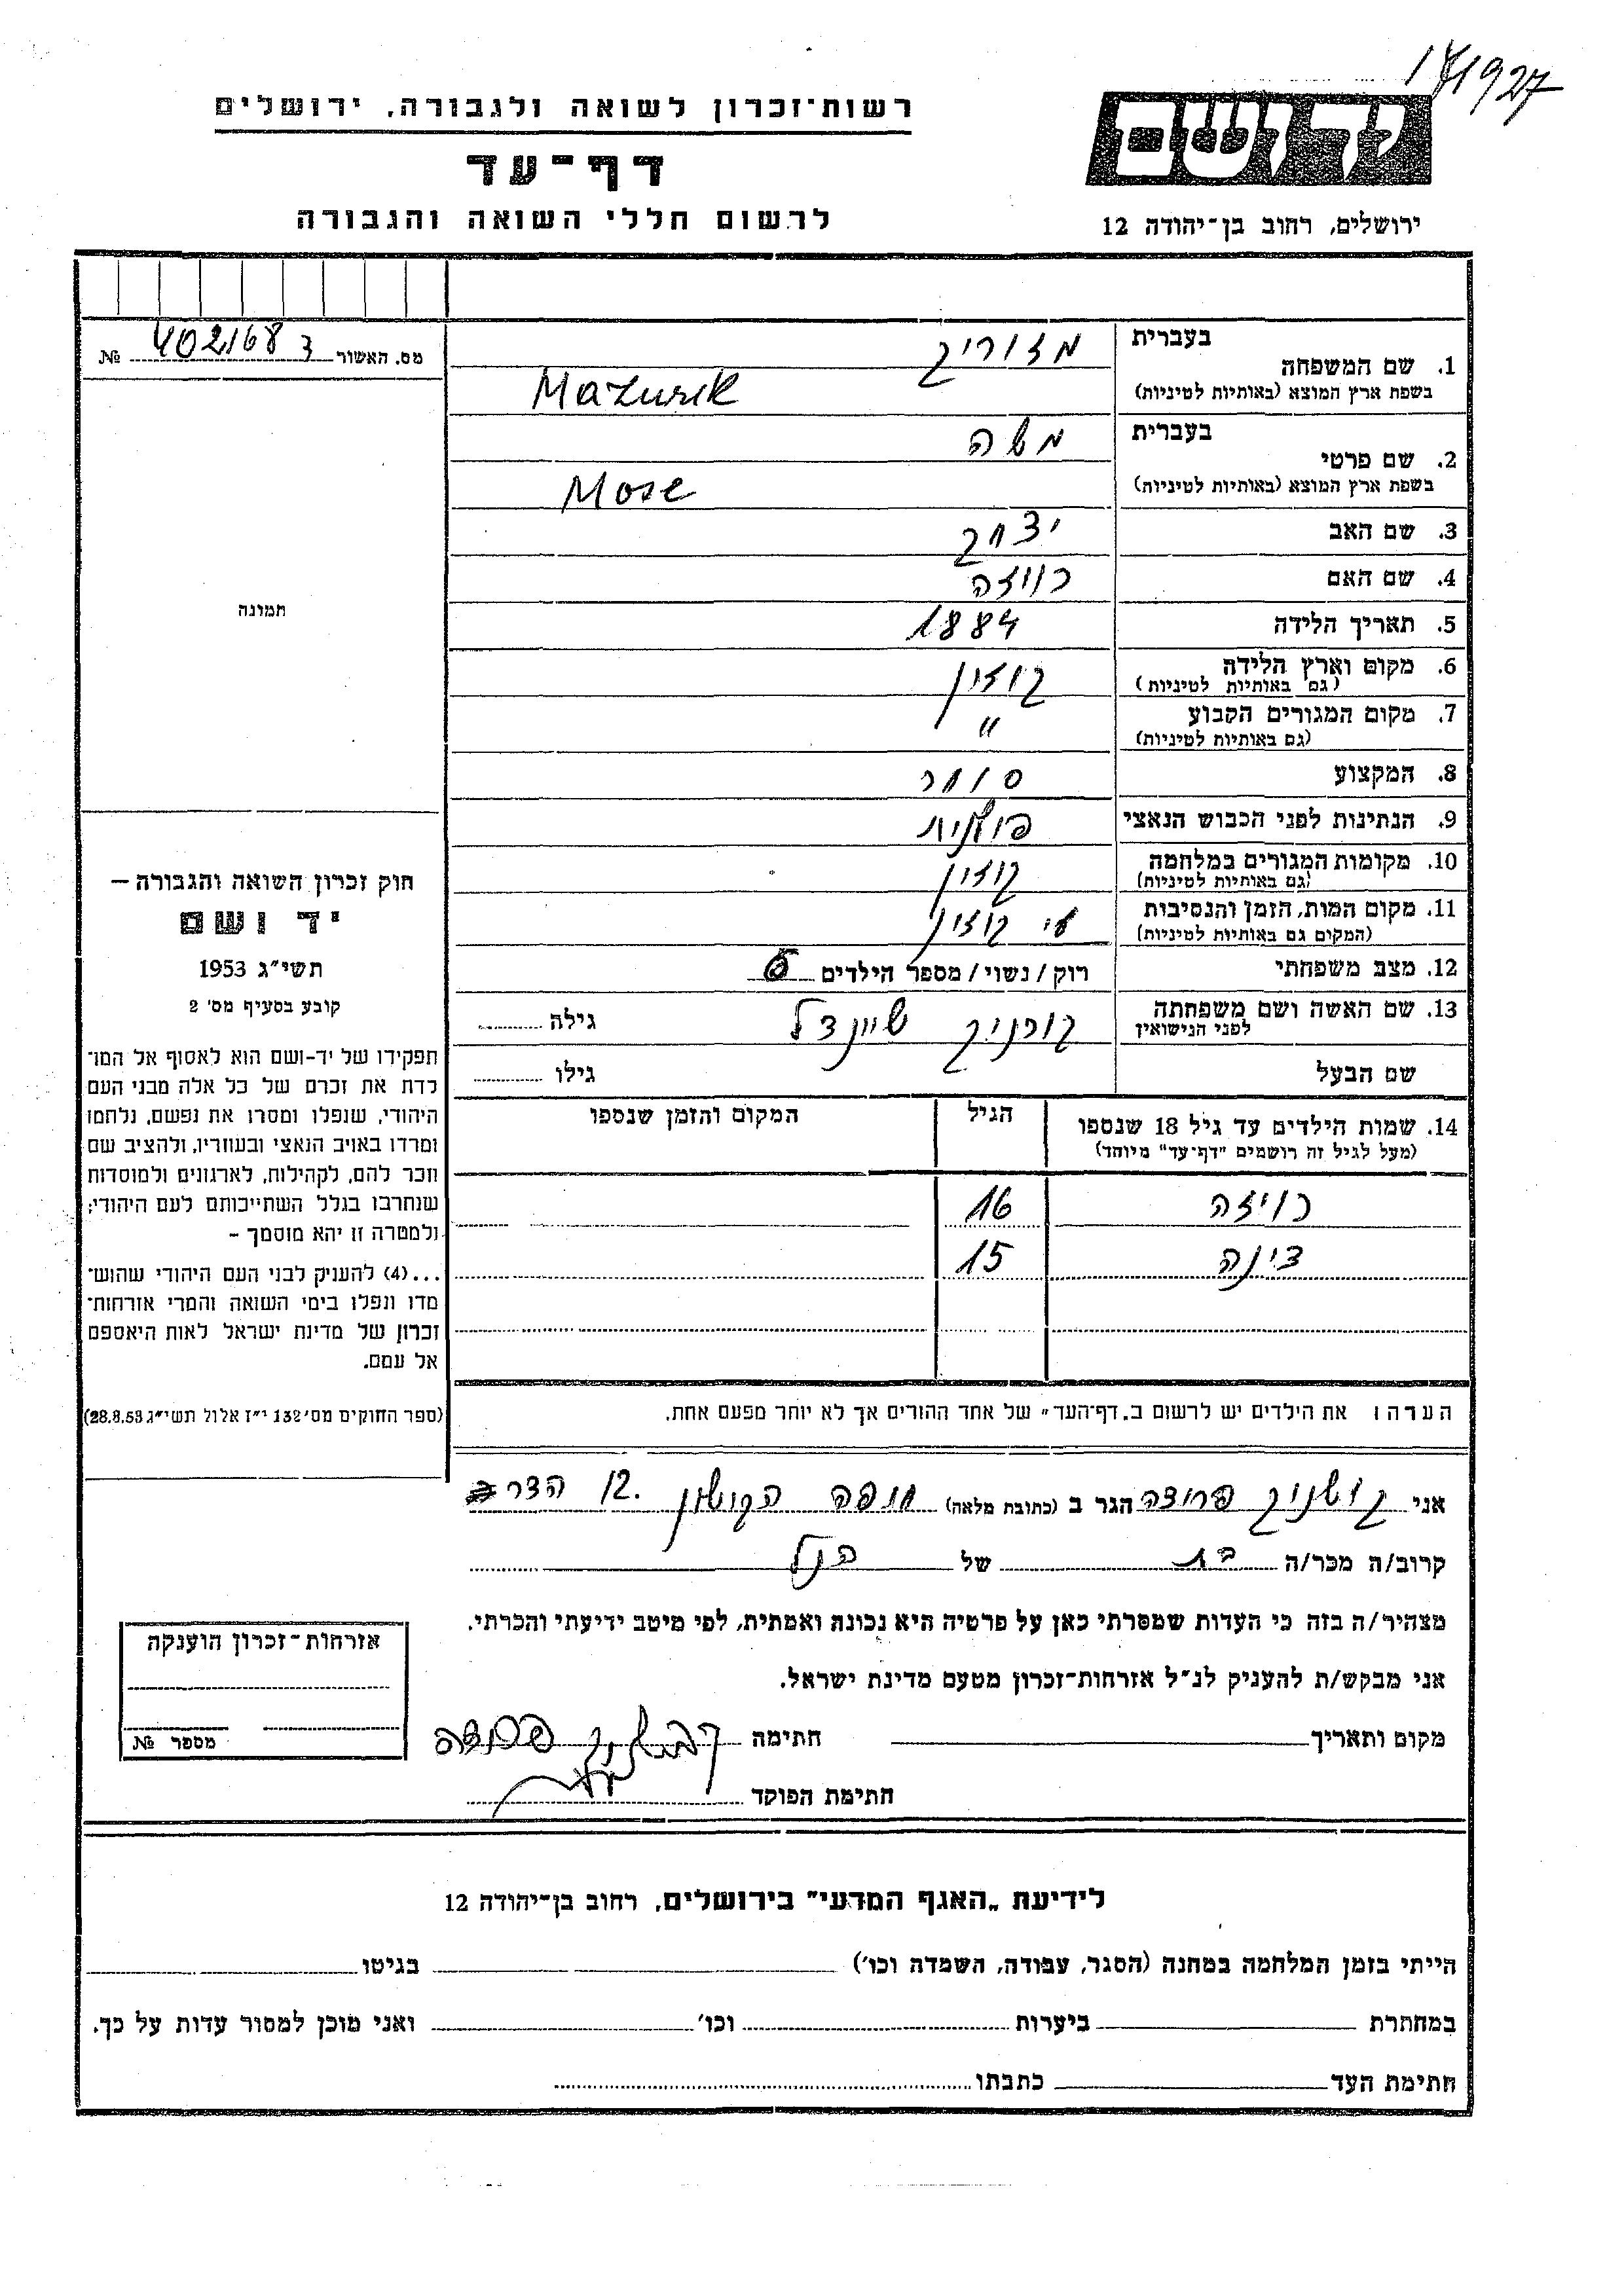 141927
יד ושם
ירושלים, רחוב בן־יהודה 12
רשות־זכרון לשואה ולגבורה, ירושלים
דף־עד
לרשום חללי השואה והגבורה
מס. האשור 402168 ג №
תמונה
חוק זכרון השואה והגבורה —
יד ושם
תשי״ג 1953
קובע בסעיף מס' 2
תפקידו של יד-ושם הוא לאסוף אל המו־
לדת את זכרם של כל אלה מבני העם
היהודי, שנפלו ומסרו את נפשם, נלחמו
ומרדו באויב הנאצי ובעוזריו, ולהציב שם
וזכר להם, לקהילות, לארגונים ולמוסדות
שנחרבו בגלל השתייכותם לעם היהודי;
ולמטרה זו יהא מוסמך –
...(4) להעניק לבני העם היהודי שהוש־
מדו ונפלו בימי השואה והמרי אזרחות־
זכרון של מדינת ישראל לאות היאספם
אל עמם.
(ספר החוקים מס' 132 י״ז אלול תשי״ג 28.8.53)
בעברית מזוריק
1. שם המשפחה
בשפת ארץ המוצא (באותיות לטיניות) Mazurik
בעברית משה
2. שם פרטי
בשפת ארץ המוצא (באותיות לטיניות) Mose
3. שם האב יצחק
4. שם האם רויזה
5. תאריך הלידה 1884
6. מקום וארץ הלידה קוזין
(גם באותיות לטיניות)
7. מקום המגורים הקבוע "
(גם באותיות לטיניות)
8. המקצוע סוחר
9. הנתינות לפני הכבוש הנאצי פולנית
10. מקומות המגורים במלחמה קוזין
(גם באותיות לטיניות)
11. מקום המות, הזמן והנסיבות קוזין
(המקום גם באותיות לטיניות)
12. מצב משפחתי רוק / נשוי / מספר הילדים
13. שם האשה ושם משפחתה שיינדל גילה
לפני הנישואין
שם הבעל גילו
14. שמות הילדים עד גיל 18 שנספו הגיל המקום והזמן שנספו
(מעל לגיל זה רושמים "דף־עד" מיוחד)
רויזה 16
דינה 15
הערה: את הילדים יש לרשום ב„דף־העד״ של אחד ההורים אך לא יותר מפעם אחת.
אני קושניק פרידה הגר ב (כתובת מלאה) חיפה 12. הדר
קרוב/ה מכר/ה בת של הנ"ל
מצהיר/ה בזה כי העדות שמסרתי כאן על פרטיה היא נכונה ואמתית, לפי מיטב ידיעתי והכרתי.
אני מבקש/ת להעניק לנ״ל אזרחות־זכרון מטעם מדינת ישראל.
מקום ותאריך חתימה קושניק פרידה
חתימת הפוקד
אזרחות־זכרון הוענקה
מספר №
לידיעת „האגף המדעי״ בירושלים, רחוב בן־יהודה 12
הייתי בזמן המלחמה במחנה (הסגר, עבודה, השמדה וכו') בגיטו
במחתרת ביערות וכו' ואני מוכן למסור עדות על כך.
חתימת העד כתבתו